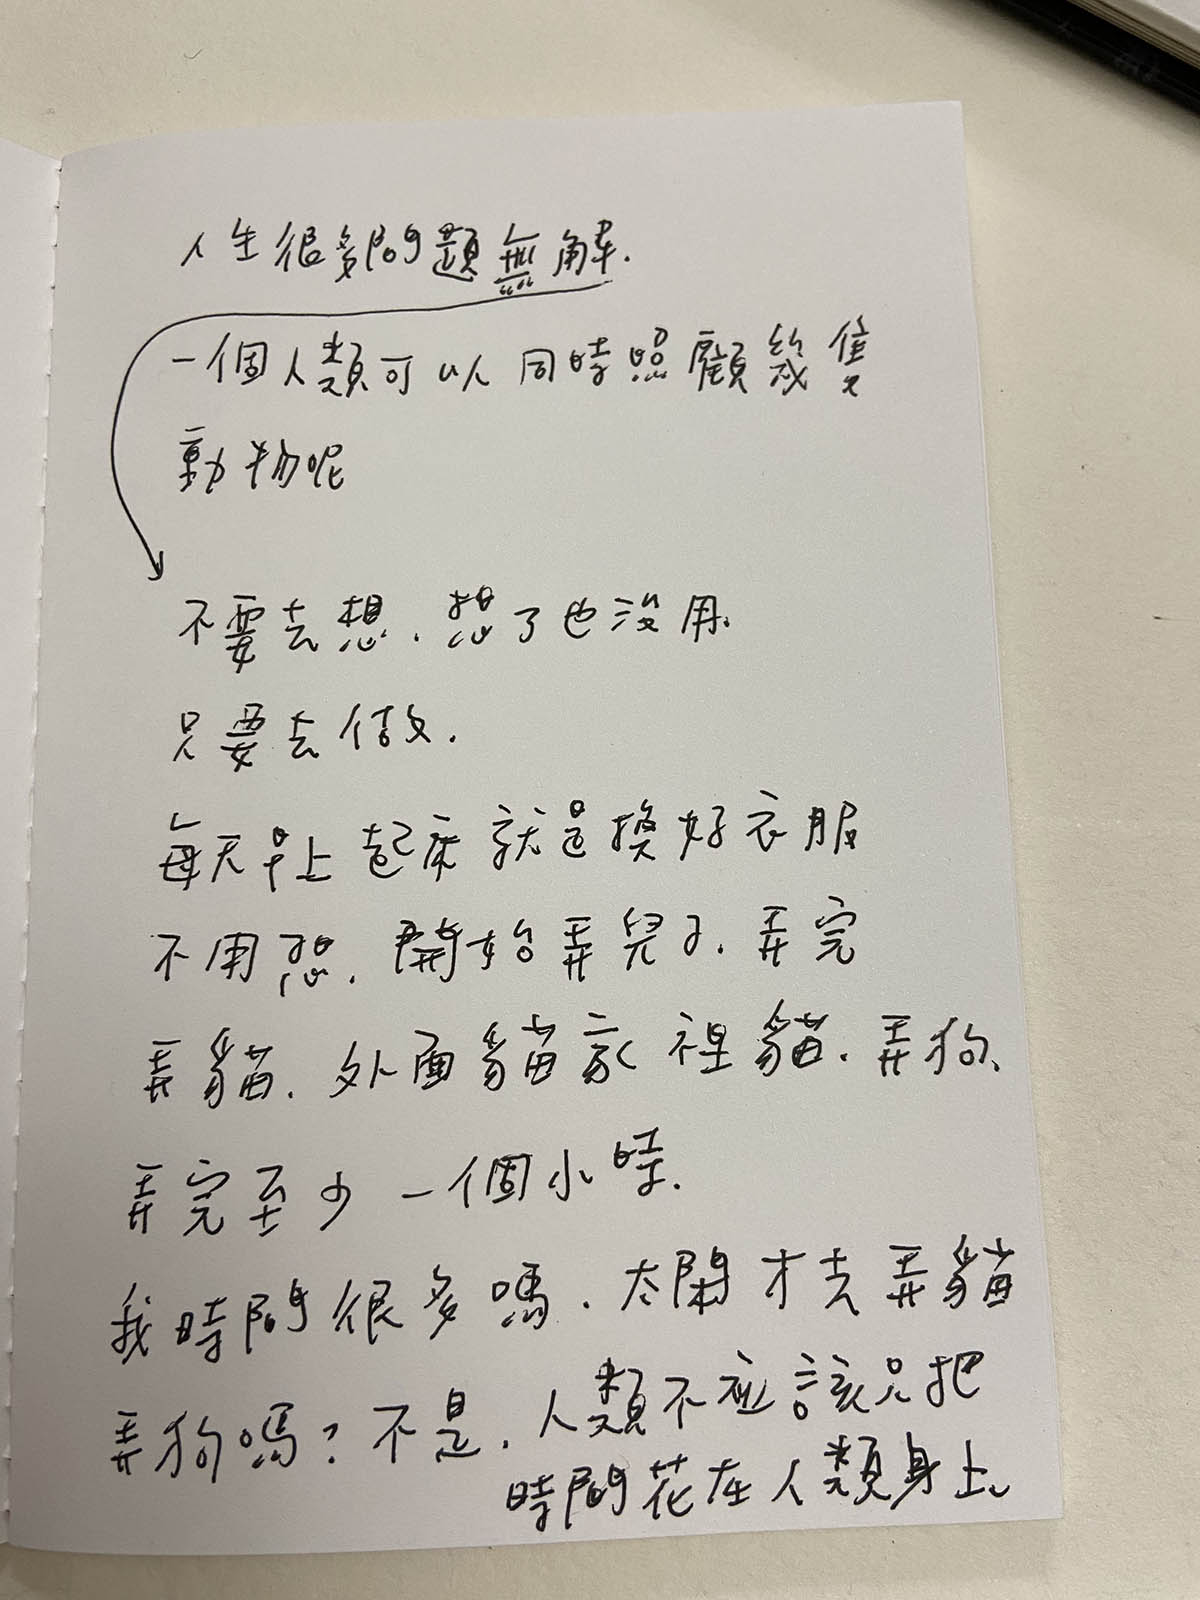 人生很多問題無解.
一個人類可以同時照顧幾隻
動物呢
不要去想.想了也沒用.
只要去做.
每天早上起床就是換好衣服
不用想.開始弄兒子.弄完
弄貓.外面貓家裡貓.弄狗、
弄完至少一個小時.
我時間很多嗎.太閑才去弄貓
弄狗嗎?不是.人類不應該只把
時間花在人類身上、